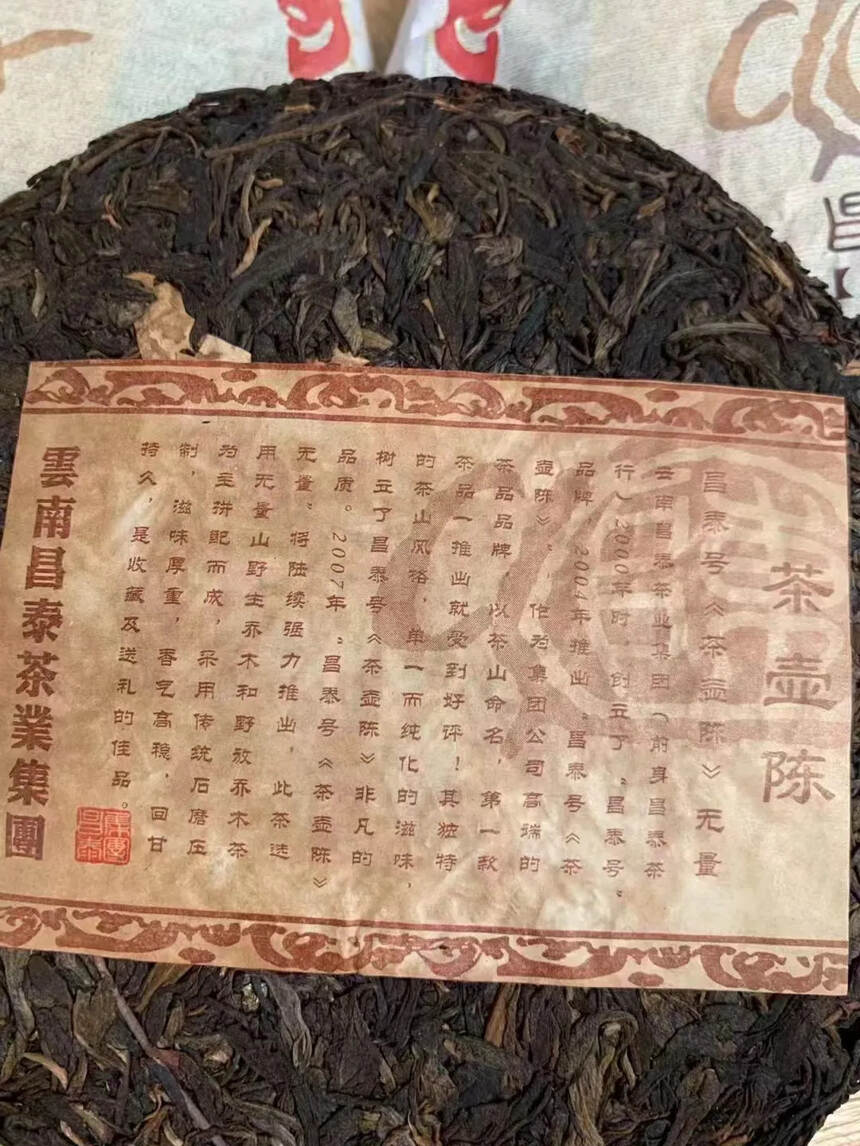 茶壶陈
昌泰号《茶壶陈》无量
云南昌泰茶业集团（前身昌泰茶
行）2000年时，创立了“昌泰号”
品牌，2004年推出“昌泰号《茶
壶陈》”，作为集团公司高端的
茶品品牌，以茶山命名，第一款
茶品一推出就受到好评！其独特
的茶山风格，单一而纯化的滋味，
树立了昌泰号《茶壶陈》非凡的
品质。2007年“昌泰号《茶壶陈》
无量”将陆续强力推出，此茶选
用无量山野生乔木和野放乔木茶
为主拼配而成，采用传统石磨压
制，滋味厚重，香气高稳，回甘
持久，是收藏及送礼的佳品。
雲南昌泰茶業集團
昌泰集團
昌